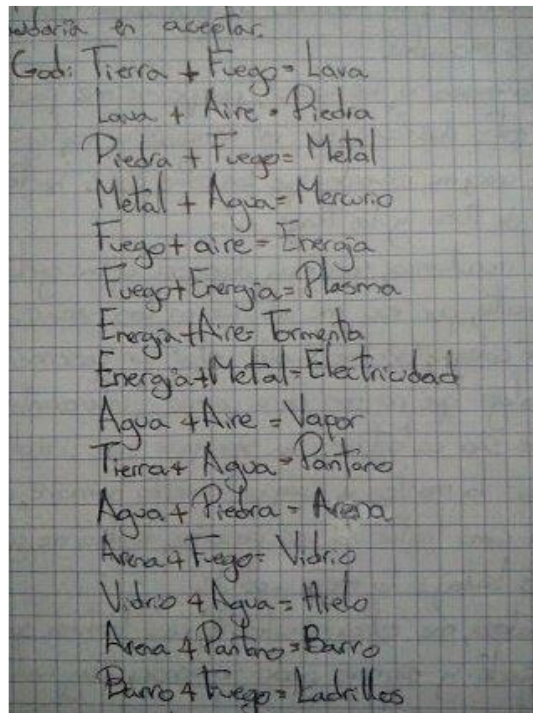 en aceptar.
God: Tierra + Fuego = Lava
Lava + Aire = Piedra
Piedra + Fuego = Metal
Metal + Agua = Mercurio
Fuego + aire = Energía
Fuego + Energía = Plasma
Energía + Aire = Tormenta
Energía + Metal = Electricidad
Agua + Aire = Vapor
Tierra + Agua = Pantano
Agua + Piedra = Arena
Arena + Fuego = Vidrio
Vidrio + Agua = Hielo
Arena + Pantano = Barro
Barro + Fuego = Ladrillos